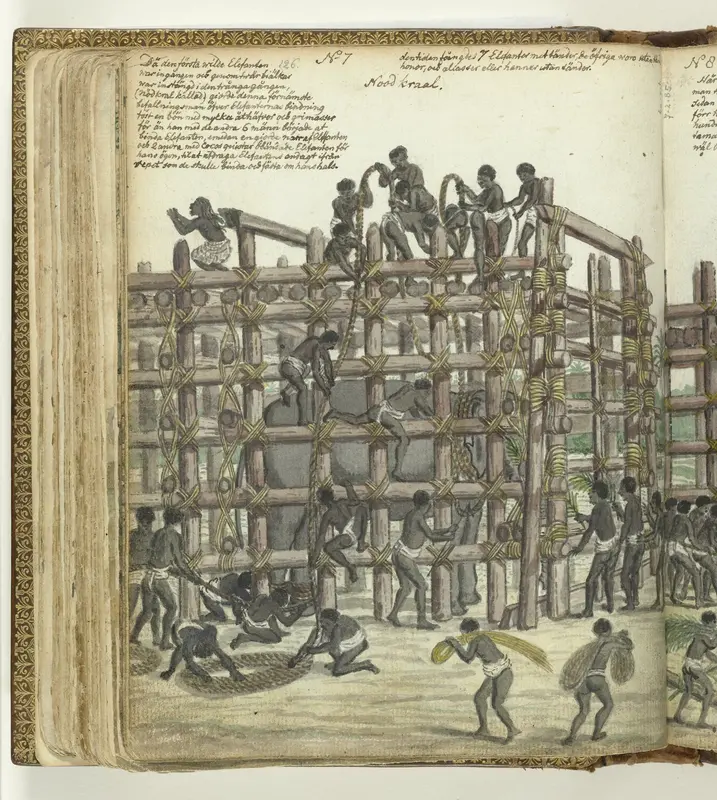 Då den förste wilde Elefanten
war ingången och genom twär biälkar
war instängd i den trånga gången,
(Nood kral kallad) giorde denna förnämste
befallningsman öfver Elefanternas bindning
först en bön med mycket åthäfvor och grimasser
för än han med de andra 6 männer började at
binda Elefanten, medan en giorde narr af Elefanten
och 2 andra med Cocos quistar Elefanten för
hans ögon, til at afdraga Elefantens andagt ifrån
repet som de skulle binda och fästa om hans hals.
126.
No 7
den tiden fångdes 7 Elefanter med tänder, de öfrige woro
honor, och aliasser eller hannor utan tänder.
Nood kraal.
No 8
Här
man
sedan
förr
hund
tama
wäl